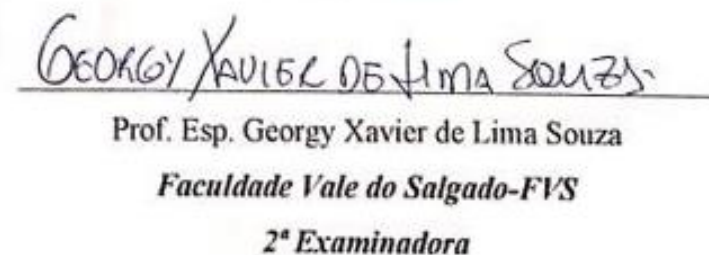 GEORGY XAVIER DE LIMA SOUZA.
Prof. Esp. Georgy Xavier de Lima Souza
Faculdade Vale do Salgado-FVS
2ª Examinadora